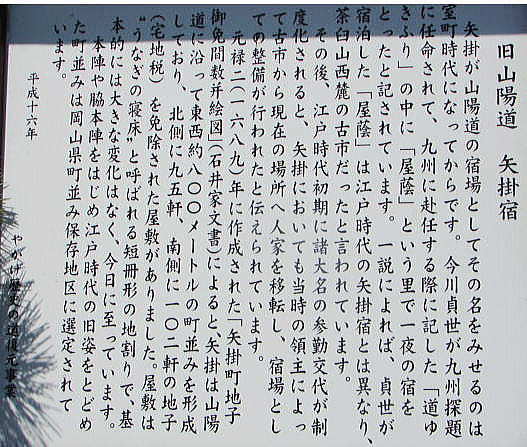 旧山陽道　矢掛宿
矢掛が山陽道の宿場としてその名をみせるのは
室町時代になってからです。今川貞世が九州探題
に任命されて、九州に赴任する際に記した「道ゆ
きふり」の中に「屋蔭」という里で一夜の宿を
とったと記されています。一説によれば、貞世が
宿泊した「屋蔭」は江戸時代の矢掛宿とは異なり、
茶臼山西麓の古市だったと言われています。
その後、江戸時代初期に諸大名の参勤交代が制
度化されると、矢掛においても当時の領主によっ
て古市から現在の場所へ人家を移転し、宿場とし
ての整備が行われたと伝えられています。
元禄二（一六八九）年に作成された「矢掛町地子
御免間数并絵図（石井家文書）によると、矢掛は山陽
道に沿って東西約八〇〇メートルの町並みを形成
しており、北側に九五軒、南側に一〇二軒の地子
（宅地税）を免除された屋敷がありました。屋敷は
“うなぎの寝床”と呼ばれる短冊形の地割りで、基
本的には大きな変化はなく、今日に至っています。
本陣や脇本陣をはじめ江戸時代の旧姿をとどめ
た町並みは岡山県町並み保存地区に選定されて
います。
平成十六年
やかげ歴史の道復元事業